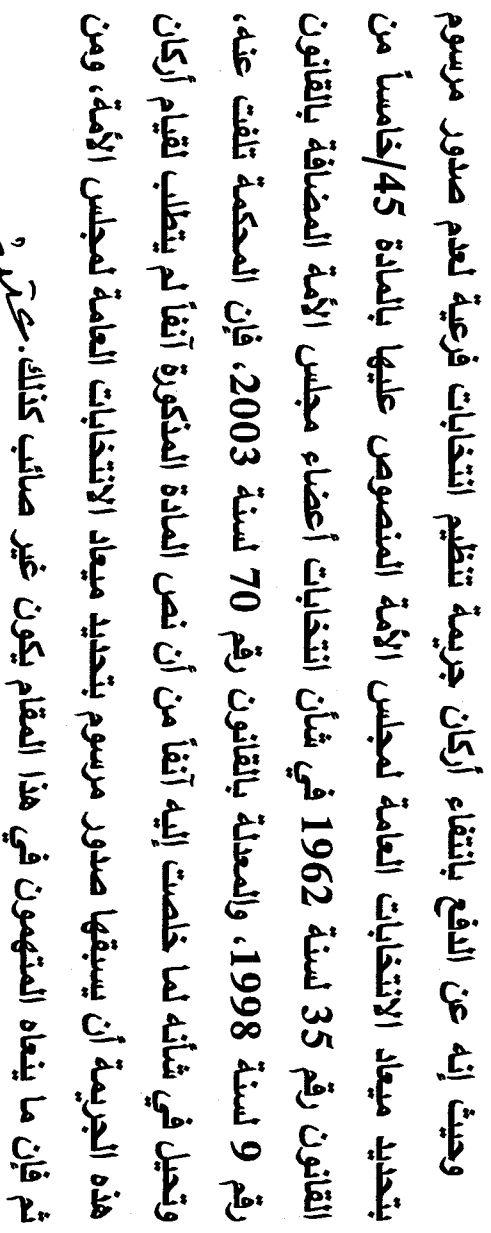 وحيث إنه عن الدفع بانتفاء أركان جريمة تنظيم انتخابات فرعية لعدم صدور مرسوم
بتحديد ميعاد الانتخابات العامة لمجلس الأمة المنصوص عليها بالمادة 45/خامساً من
القانون رقم 35 لسنة 1962 في شأن انتخابات أعضاء مجلس الأمة المضافة بالقانون
رقم 9 لسنة 1998، والمعدلة بالقانون رقم 70 لسنة 2003، فإن المحكمة تلفت عنه،
وتحيل في شأنه لما خلصت إليه آنفاً من أن نص المادة المذكورة آنفاً لم يتطلب لقيام أركان
هذه الجريمة أن يسبقها صدور مرسوم بتحديد ميعاد الانتخابات العامة لمجلس الأمة، ومن
ثم فإن ما ينعاه المتهمون في هذا المقام يكون غير صائب كذلك.